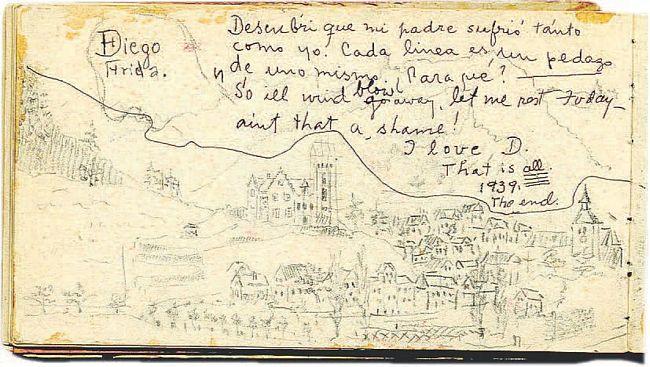 Diego
Frida.
Descubri que mi padre sufrió tánto
como yo. Cada linea es un pedazo
y de uno mismo. Para qué?
So ill wind go away, let me rest Today
aint that a shame!
I love D.
That is all
1939.
The end.